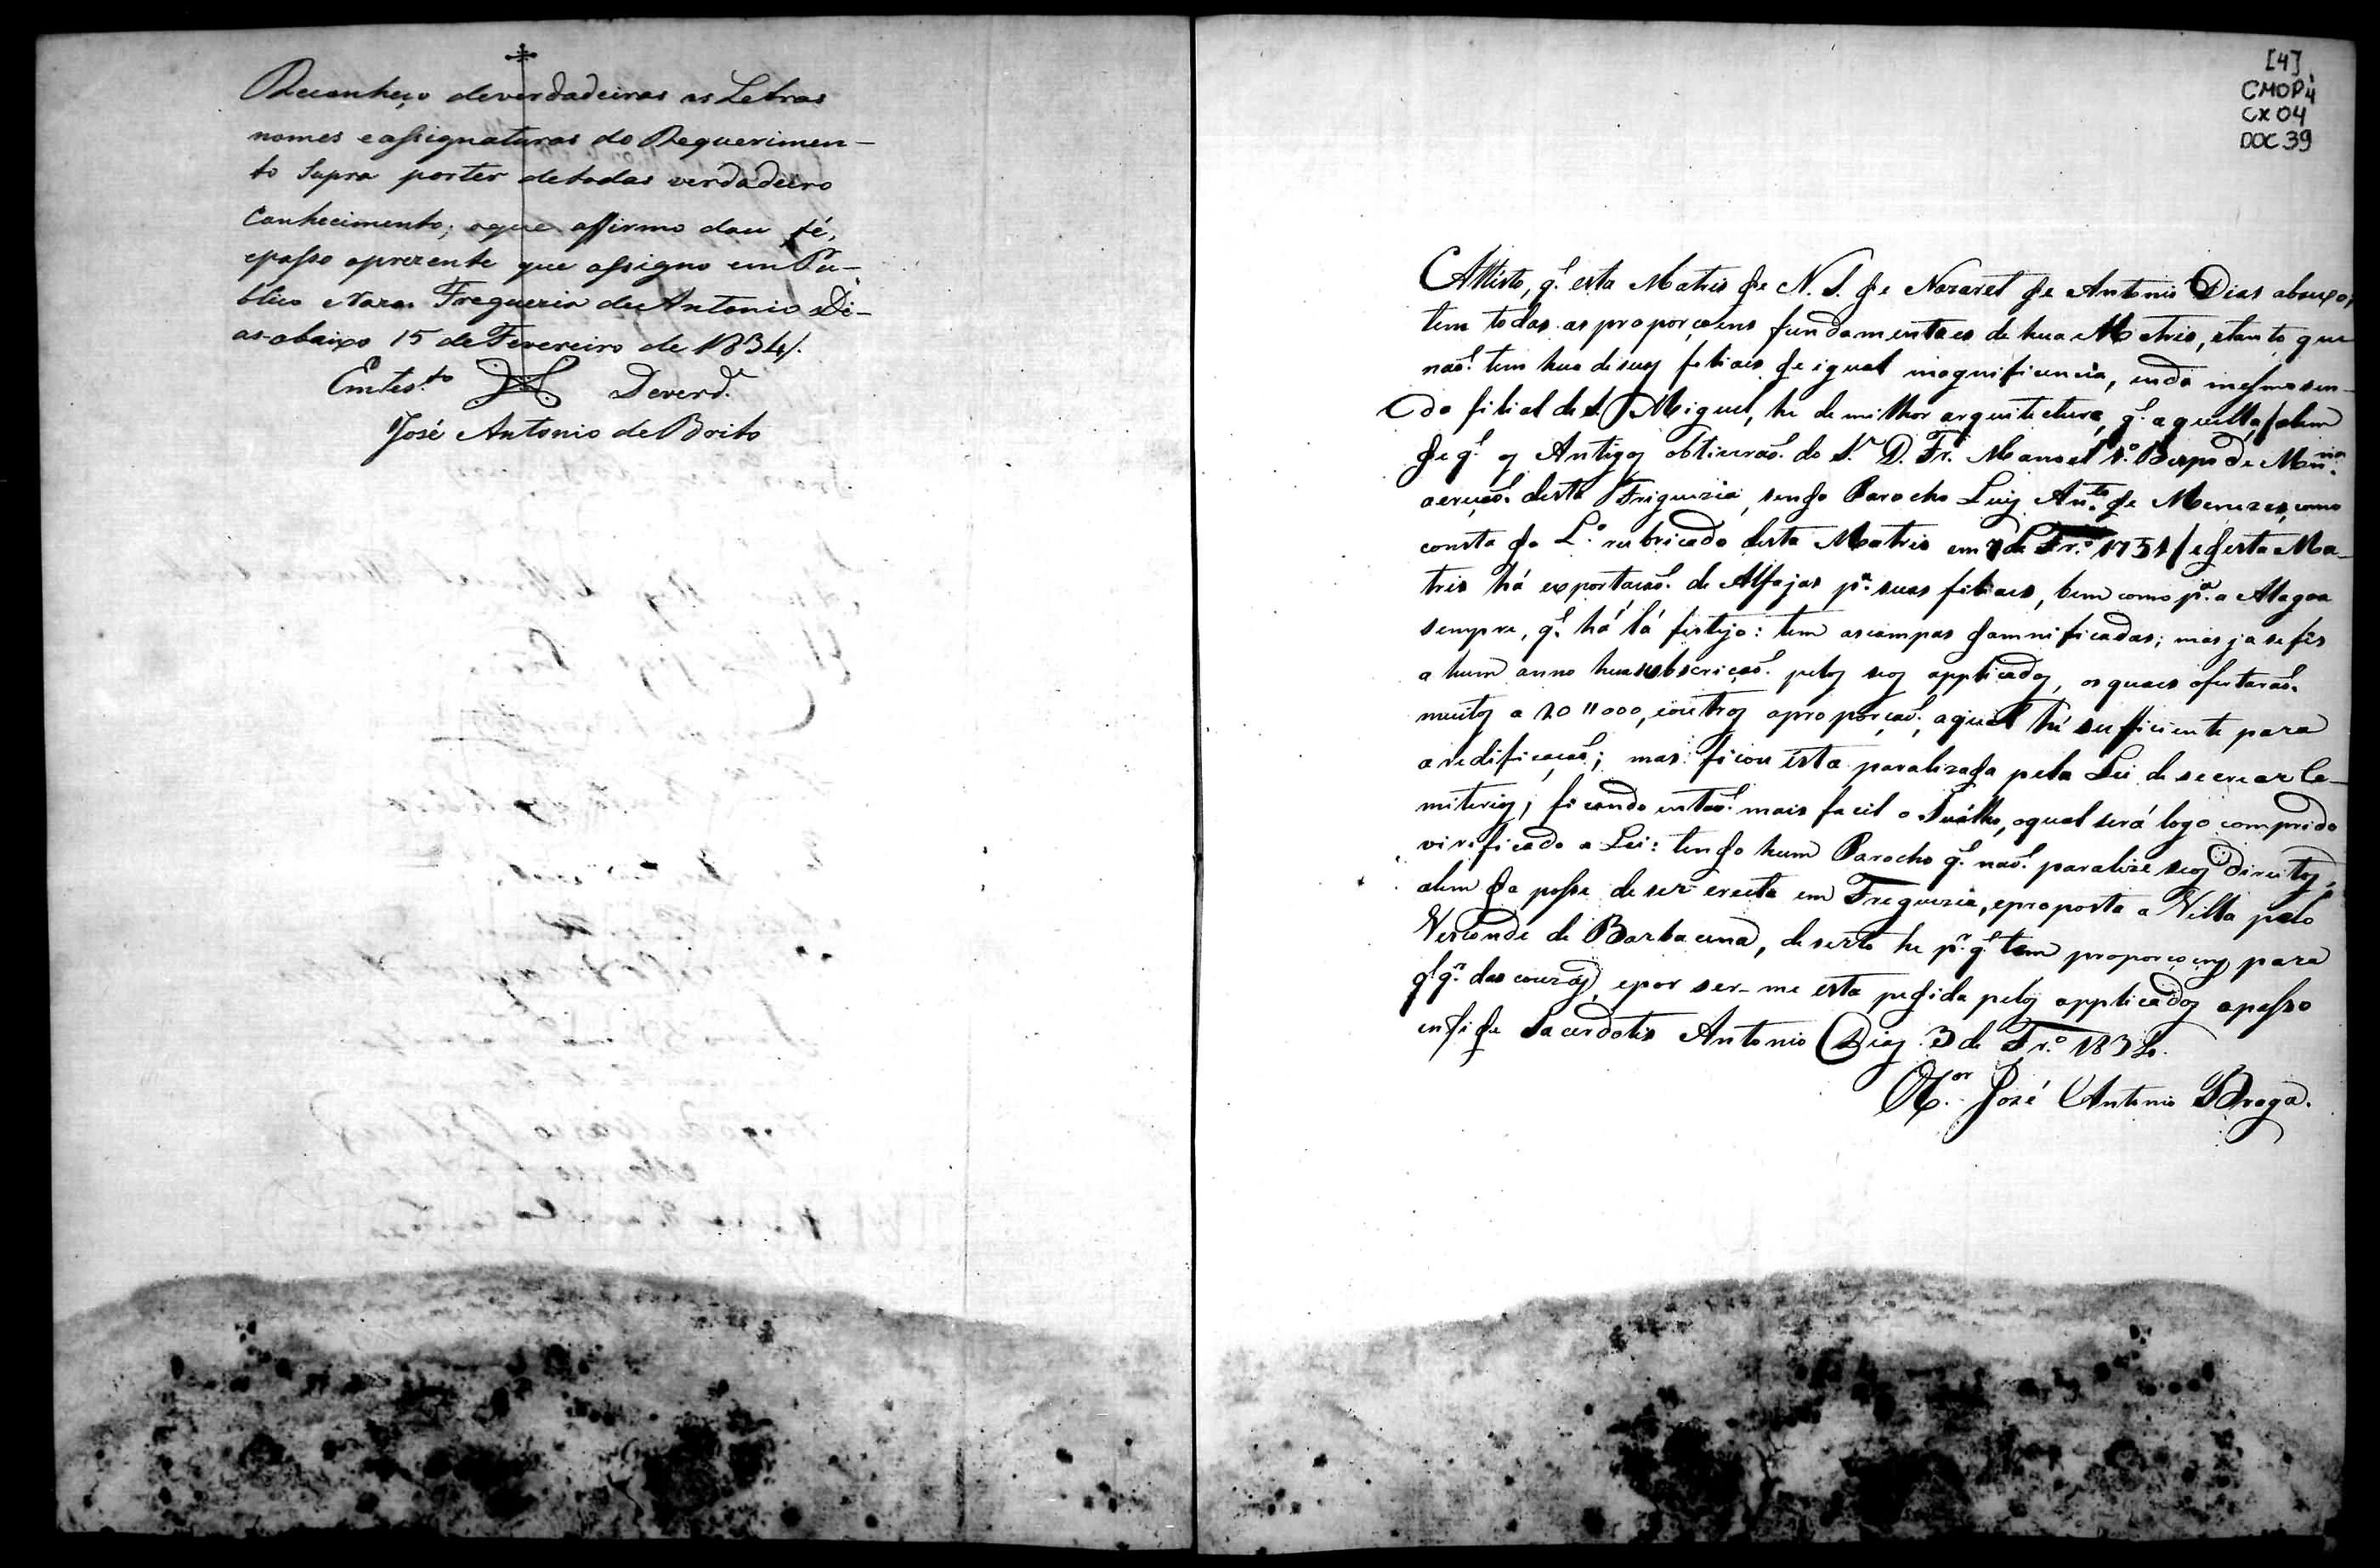 Reconheço deverdadeiras as Letras
nomes eassignaturas do Requerimen-
to Supra porter detodas verdadeiro
Conhecimento; oque affirmo dou fé,
epasso aprezente que assigno em Pu-
blico e razo. Freguezia de Antonio Di-
as-abaixo 15 de Fevereiro de 1834/.
Emtes.to Deverd.e
José Antonio de Brito
[4]
CMOP
CX 04
DOC 39
Attésto, q.' esta Matris de N. S. de Nazaret de Antonio Dias abaixo,
tem todas as proporçoens fundamentaes de hua Matris, etanto que
naõ tem hua de suas filiaes de igual magnificencia, enda mesmo sen-
do filial de S. Miguel, he de milhor arquitectura, q.' aquella/alem
de q.' os Antigos obtiveraõ do S.r D. Fr. Manoel 1.º Bispo de Mari.na
aereçaõ desta Friguezia, sendo Parocho Luis An.to de Menezes, como
consta do L.º rubricado desta Matris em 7 de Fr.º 1751/edesta Ma-
tris há exportaçaõ de Alfajas p.ª suas filiaes, bem como p.ª a Alagoa
sempre, q.' há lá festejo: tem as campas damnificadas; mas ja se fês
a hum anno hua subscriçaõ pelos seos applicados, os quaes ofertaraõ
muitos a 20"000, eoutros aproporçaõ, aqual hé sufficiente para
aredificaçaõ; mas ficou ésta paralizada pela Lei de secrear Ce-
miterios, ficando entaõ mais facil o Suálho, oqual será logo comprido
virificado a Lei: tendo hum Parocho q.' naõ paralize seos direitos,
alem da posse de ser erecta em Freguezia, eproposta a Villa pelo
Visconde de Barbacena, de serto he p.r q.' tem proporçoens para
q.' q.r das couzas, epor ser-me esta pedida pelos applicados apasso
in fide Sacerdotis Antonio Dias 3 de Fr.º 1834.
José Antonio Braga.